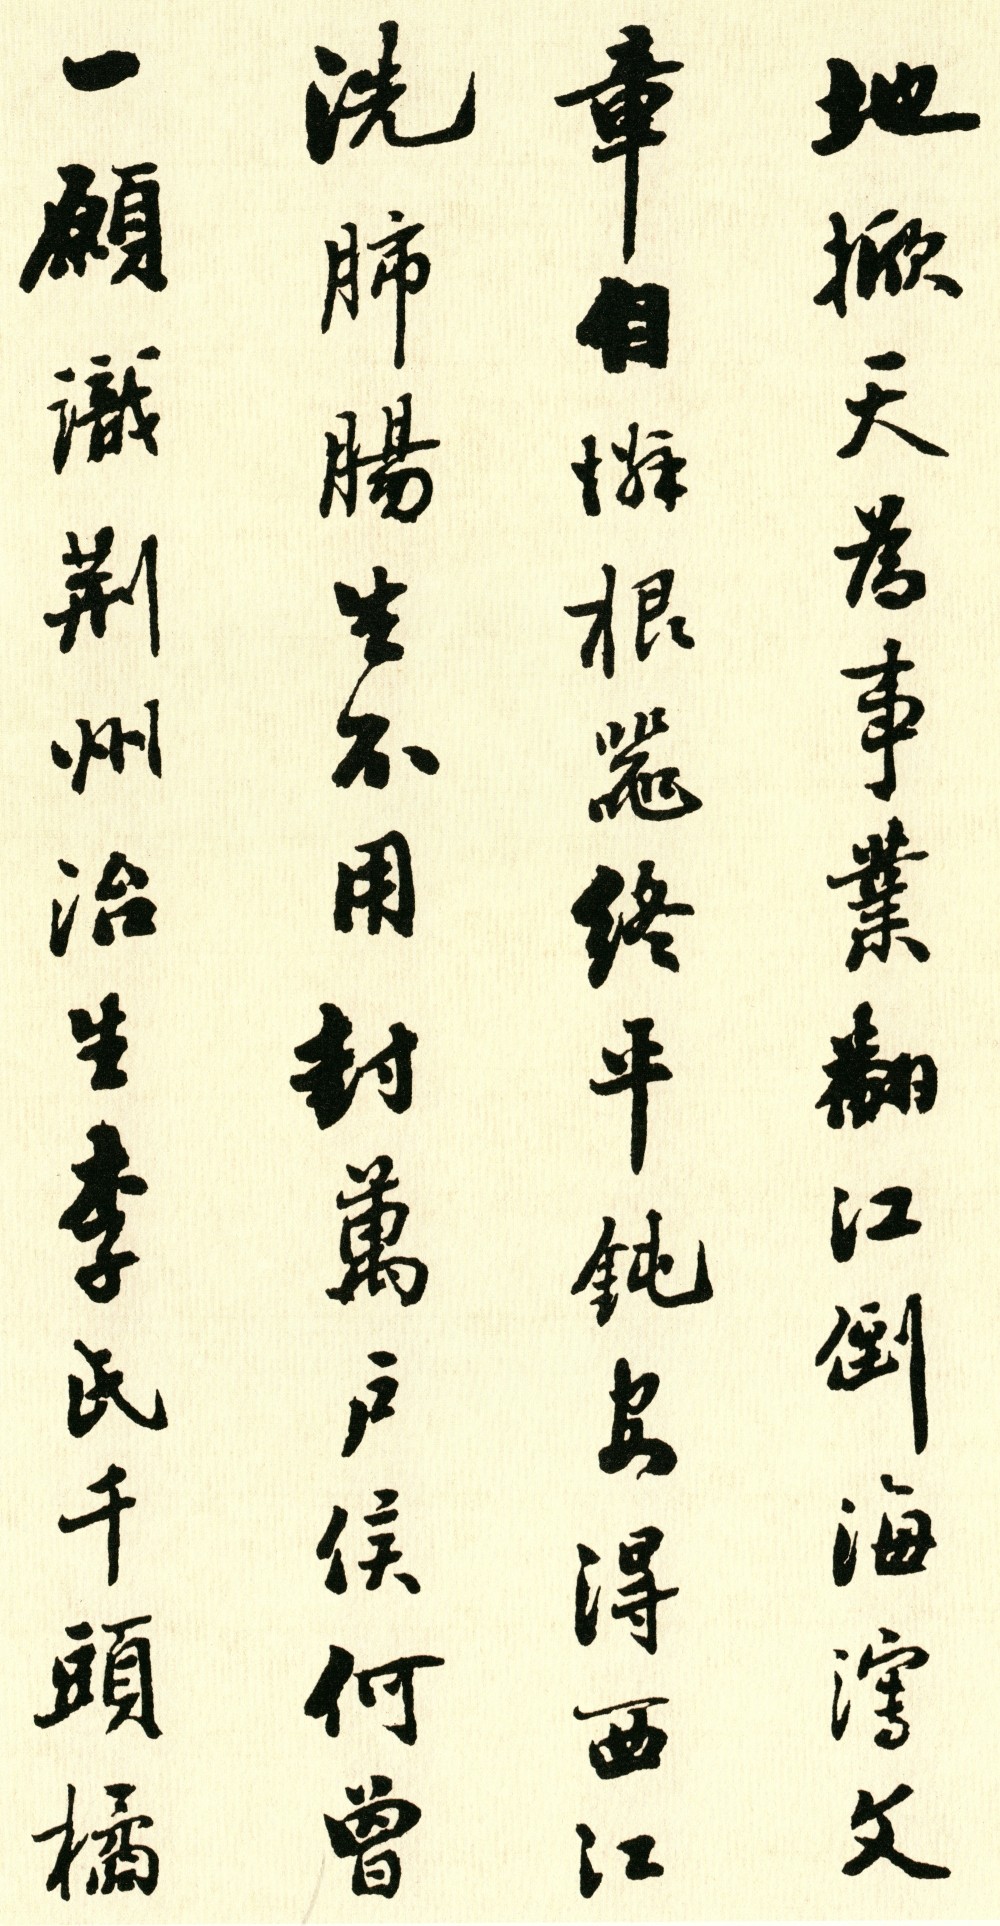 地掀天為事業翻江倒海瀉文
章自憐根器終平鈍安得西江
洗肺腸生不用封萬戶侯何曾
一願識荊州治生李氏千頭橘